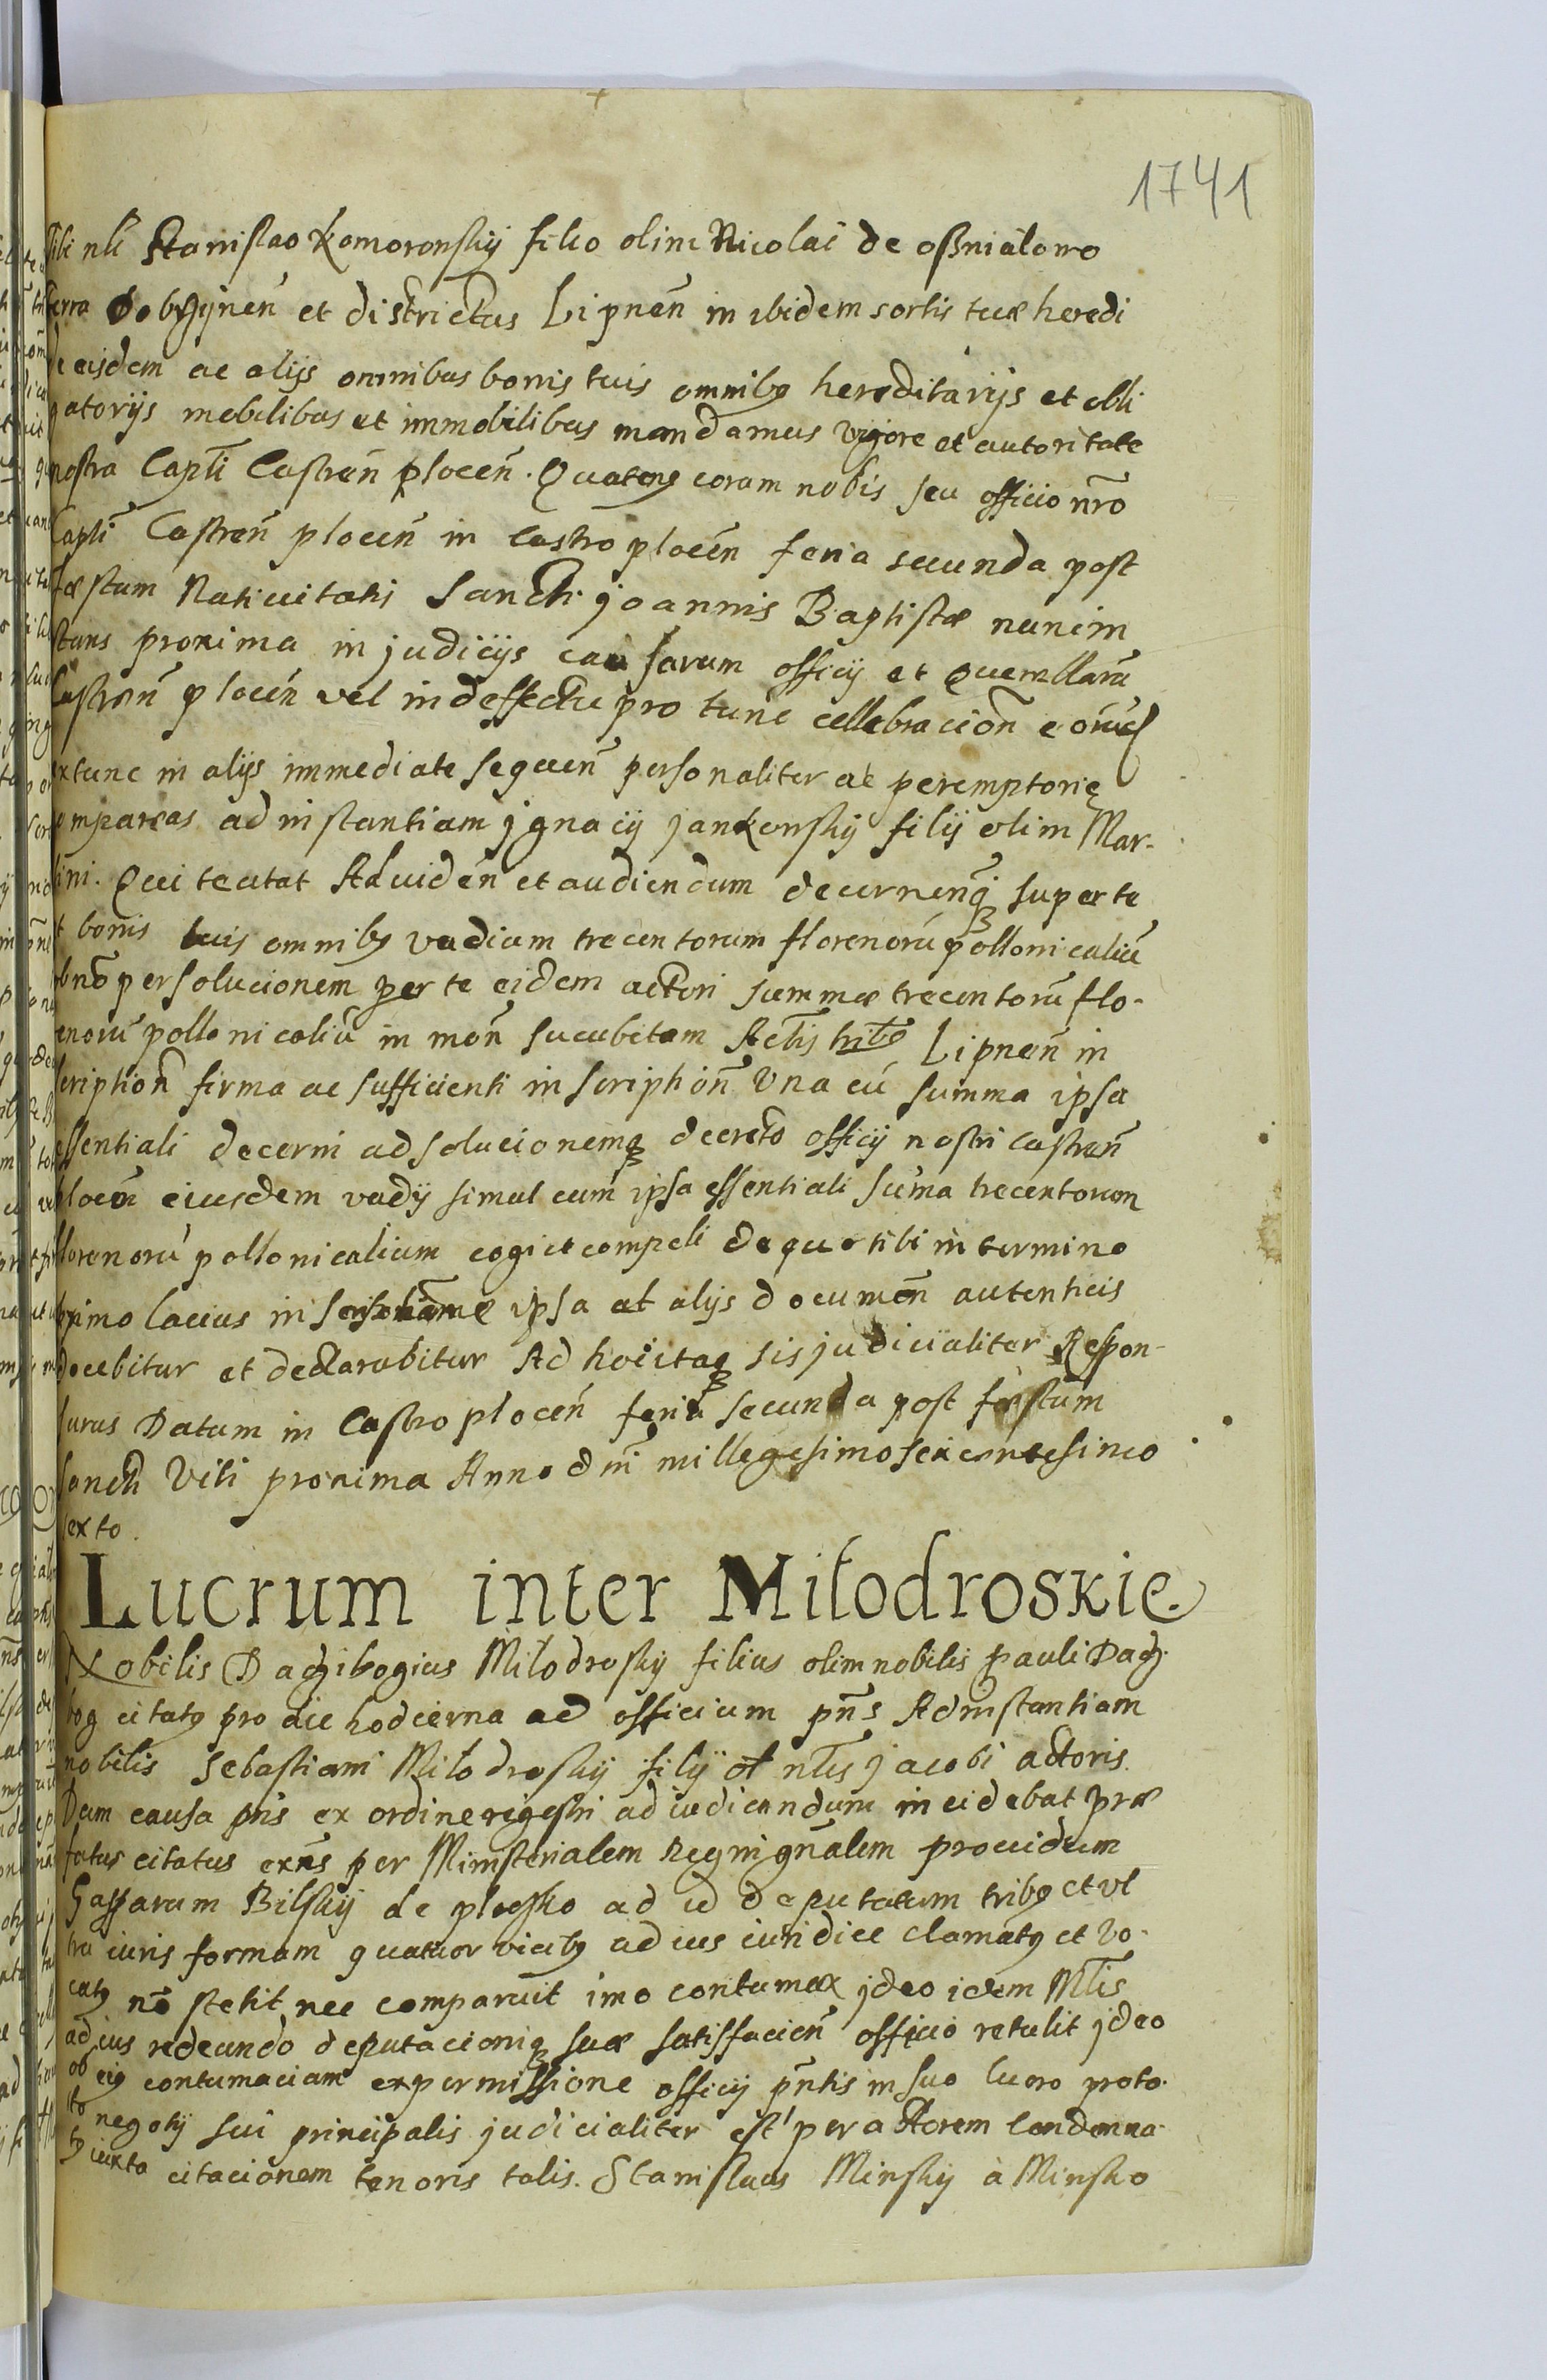 1741
tibi nli Stanislao Komoronskij filio olim Nicolai de ossnialowo
terra Dobrzijnen̄ et districtus Lipnen̄ in ibidem sortis tuæ heredi
de eisdem ac alijs omnibus bonis tuis omnibꝯ hereditarijs et obli
gatorijs mobilibus et immobilibus mandamus vigore et autoritate
nostra Capli Castren̄ plocen̄. Quatenꝯ coram nobis seu officio nr̄o
Capli Castren̄ plocen̄ in Castro plocen̄ feria secunda post
fæstum Natiuitatis Sancti joannis Baptistæ nunc in
stans proxima in judicijs causarum officij et Querellarū
Castren̄ plocen̄ vel in deffectu pro tunc cellebracion̄ eorūd
extunc in alijs immediate sequen̄ personaliter ac peremptorie
compareas ad instantiam jgnacij jankowskij filij olim Mar-
tini. Qui te citat Ad viden̄ et audiendum decernenq super te
et bonis tuis omnibꝯ vadium trecentorum florenorū pollonicaliū
ob nō persolucionem per te eidem actori summæ trecentorū flo-
renorū pollonicaliū in mon̄ sucubitam Actis tribꝯ Lipnen̄ in
scription̄ firma ac sufficienti inscription̄ Vna cū summa ipsa
essentiali decerni ad solucionemq decreto officij nostri castren̄
plocen̄ eiusdem vadij simul cum ipsa essentiali sūma trecentorum
florenorū pollonicalium cogi et compeli de quo tibi in termino
primo lacius ipsa et alijs documen̄ autenticis
docebitur et declarabitur Ad hoc itaq sis judicialiter Respon-
surus Datum in Castro plocen̄ feria secunda post fæstum
sancti Viti proxima Anno dni millegesimo sexcentesimo
sexto.
Lucrum inter Miłodroskie.
Nobilis Dadzibogius Miłodroskij filius olim nobilis pauli Dadzi
bog citatꝯ pro die hodierna ad officium pn̄s Ad instantiam
nobilis Sebastiani Miłodroskij filij ol nlis jacobi actoris.
Dum causa pn̄s ex ordine regestri ad iudicandum incidebat præ
fatus citatus exn̄s per Ministerialem Regni gn̄alem prouidum
Gasparum Bilskij de plocsko ad id deputatum tribꝯ et vl
tra iuris formam quatuor vicibꝯ ad ius iuridice clamatꝯ et vo-
catꝯ nō stetit nec comparuit imo contumax jdeo idem Mlis
ad ius redeundo deputacioniq suæ satisfacien̄ officio retulit jdeo
ob eiꝯ contumaciam ex permissione officij pn̄tis in suo lucro proto-
to negotij sui principalis judicialiter est per actorem Condemna-
tꝯ iuxta citacionem tenoris talis. Stanislaus Minskij à Minsko